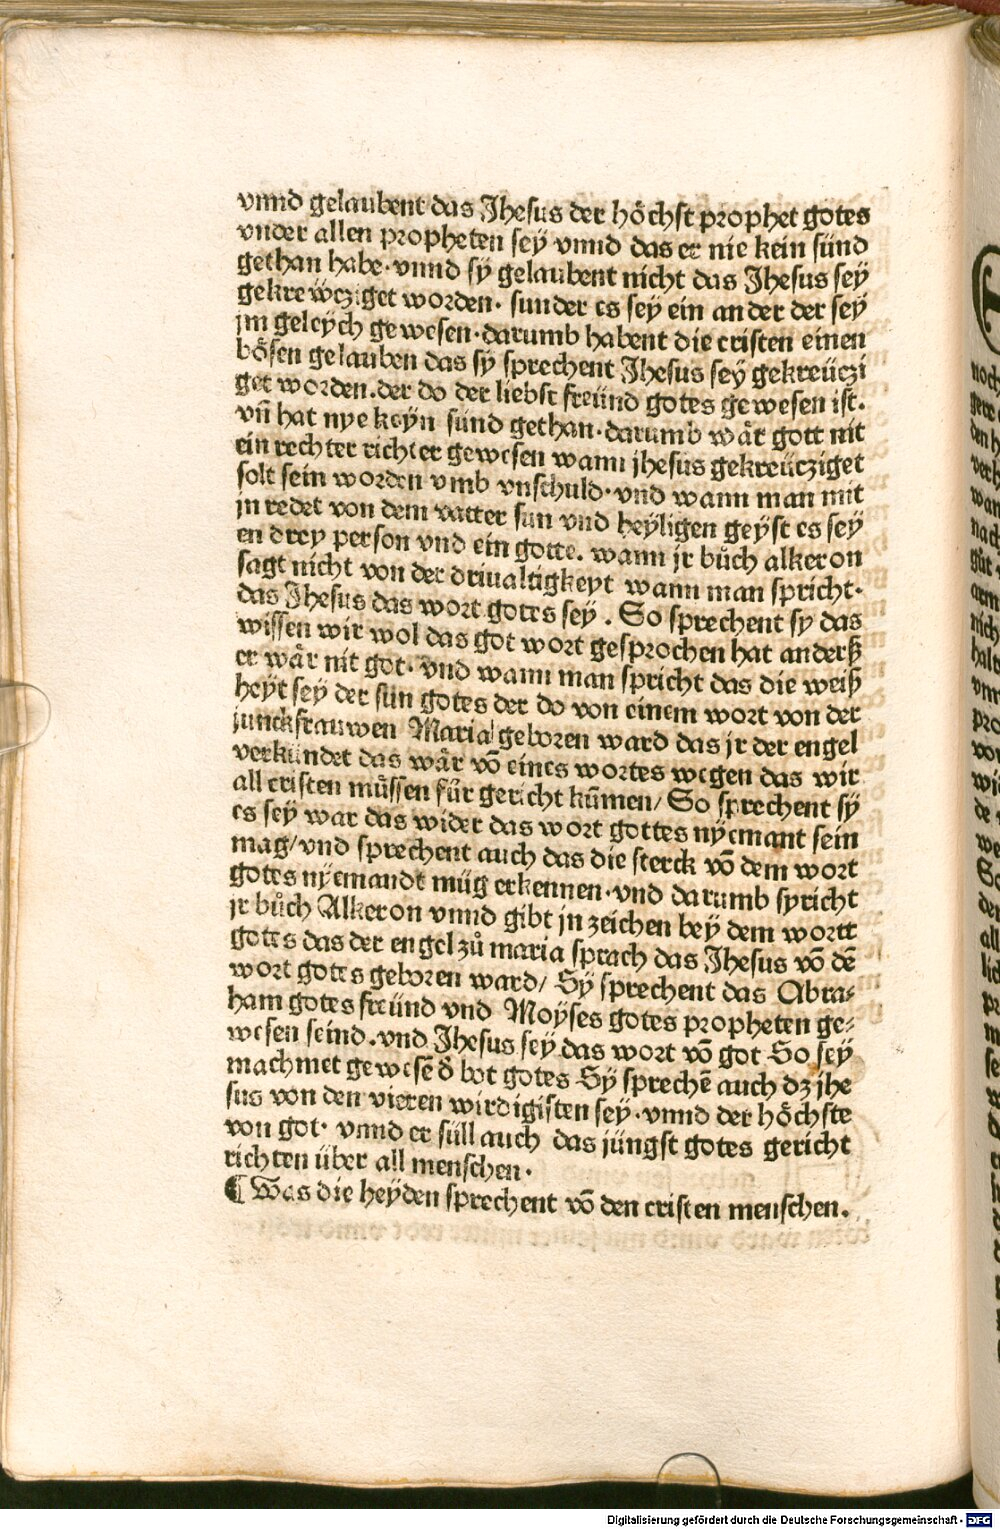 vnnd gelaubent das Jhesus der höchst prophet gotes
vnder allen propheten sey vnnd das er nie kein sünd
gethan habe·vnnd sÿ gelaubent nicht das Jhesus seÿ
gekreẅcziget worden· sunder es seÿ ein ander der seÿ
jm geleÿch gewesen·darumb habent die cristen einen
bösen gelauben das sÿ sprechent Jhesus seÿ gekreüczi
get worden.der do der liebst freünd gotes gewesen ist.
vñ hat nye keyn sünd gethan·darumb wär gott nit
ein rechter richter gewesen wann jhesus gekreücziget
solt sein worden vmb vnschuld·vnd wann man mit
jn redet von dem vatter sun vnd heÿligen geÿst es seÿ
en drey person vnd ein gotte. wann jr bůch alkeron
sagt nicht von der driualtigkeyt wann man spricht·
das Jhesus das wort gotes sey . So sprechent sy das
wissen wir wol das got wort gesprochen hat anderß
er wär nit got· vnd wann man spricht das die weiß
heÿt seÿ der sun gotes der do von einem wort von der
junckfrauwen Maria geboren ward das jr der engel
verkündet das wär võ eines wortes wegen das wir
all cristen müssen für gericht kũmen/ So sprechent sÿ
es seÿ war das wider das wort gottes nÿemant sein
mag/vnd sprechent auch das die sterck võ dem wort
gotes nÿemandt müg erkennen·vnd darumb spricht
jr bůch Alkeron vnnd gibt jn zeichen beÿ dem wortt
gotes das der engel zů maria sprach das Jhesus võ dẽ
wort gotes geboren ward/ Sÿ sprechent das Abra⸗
ham gotes freünd vnd Moÿses gotes propheten ge⸗
wesen seind.vnd Jhesus seÿ das wort võ got So seÿ
machmet gewesẽ d̕ bot gotes Sÿ sprechẽ auch dz jhe
sus von den vieren wirdigisten seÿ·vnnd der höchste
von got· vnnd er süll auch das jüngst gotes gericht
richten über all menschen·
¶ Was die heÿden sprechent võ den cristen menschen.
Digitalisierung gefördert durch die Deutsche Forschungsgemeinschaft - DFG